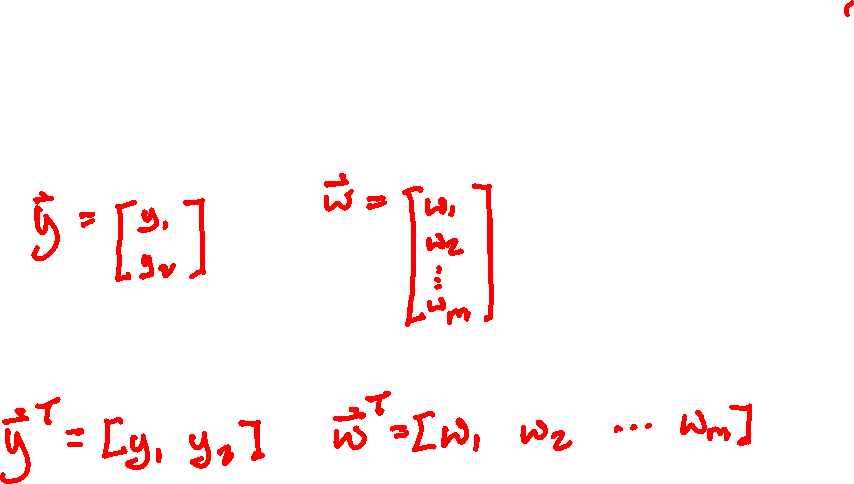 y⃗ = [y₁ y₂]    w⃗ = [w₁ w₂ ⋮ wₘ]
y⃗ᵀ = [y₁ y₂]    w⃗ᵀ = [w₁ w₂ ⋯ wₘ]